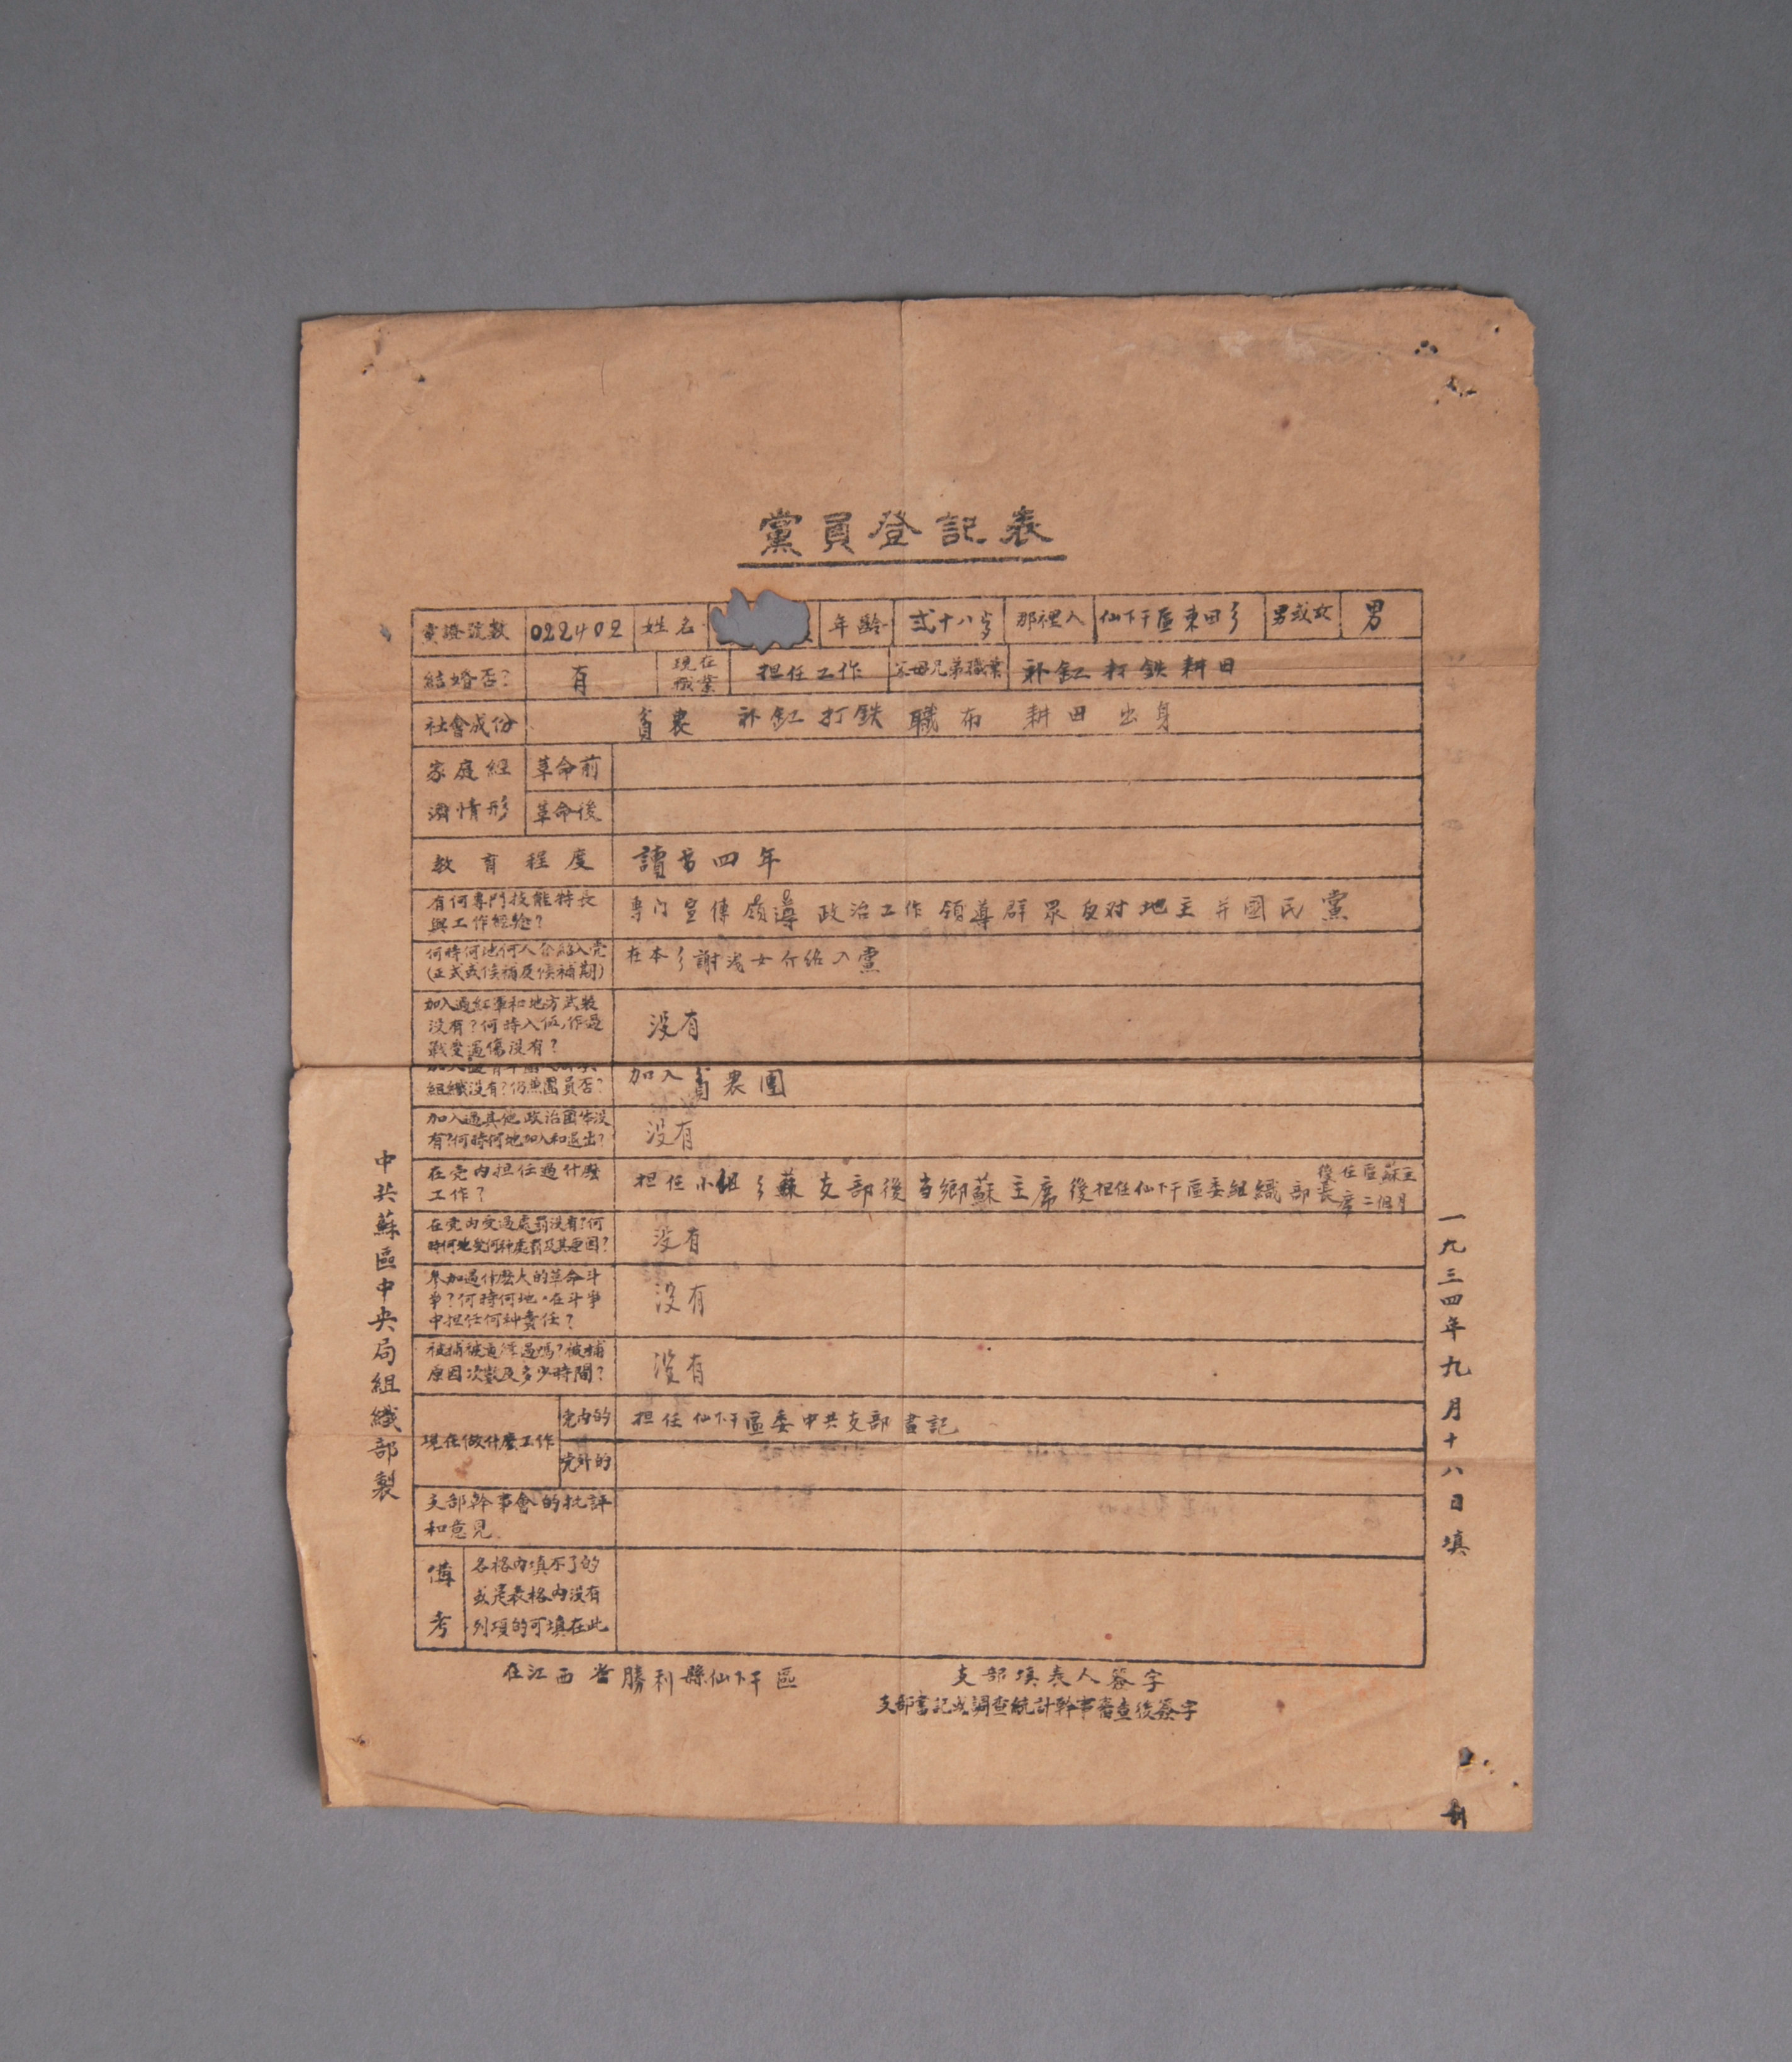 黨員登記表
黨證號數 022402 姓名 年齡 弍十八岁 那裡人 仙下干區東田乡 男或女 男
結婚否? 有 現在職業 担任工作 父母兄弟職業 补缸打鉄耕田
社會成份 貧農 补缸打鉄 職布 耕田出身
家庭經濟情形 革命前
革命後
教育程度 讀書四年
有何專門技能特長
與工作經驗?
專门宣傳領導政治工作領導群眾反对地主并國民黨
何時何地何人介紹入党
(正式或候補及候補期)
在本乡謝 女介紹入黨
加入過紅軍和地方武裝
没有?何時入伍,作過
戰受過傷没有?
没有
組織没有?仍兼團員否?
加入貧農團
加入過其他政治團体没
有?何時何地加入和退出?
没有
在党内担任過什麼
工作?
担任小組乡蘇支部後当鄉蘇主席後担任仙下干區委組織部長後任區蘇主席二個月
在党内受過處罰没有?何
時何地受何种處罰及其原因?
没有
參加過什麼大的革命斗
争?何時何地·在斗争
中担任何种責任?
没有
被捕被 過嗎?被捕
原因次數及多少時間?
没有
現在做什麼工作 党内的 担任仙下干區委中共支部書記
党外的
支部幹事會的批評
和意見
備考 各格内填不了的
或是表格内没有
列項的可填在此
在江西省勝利縣仙下干區
支部填表人簽字
支部書記或調查統計幹事審查後簽字
中共蘇區中央局組織部製
一九三四年九月十八日填